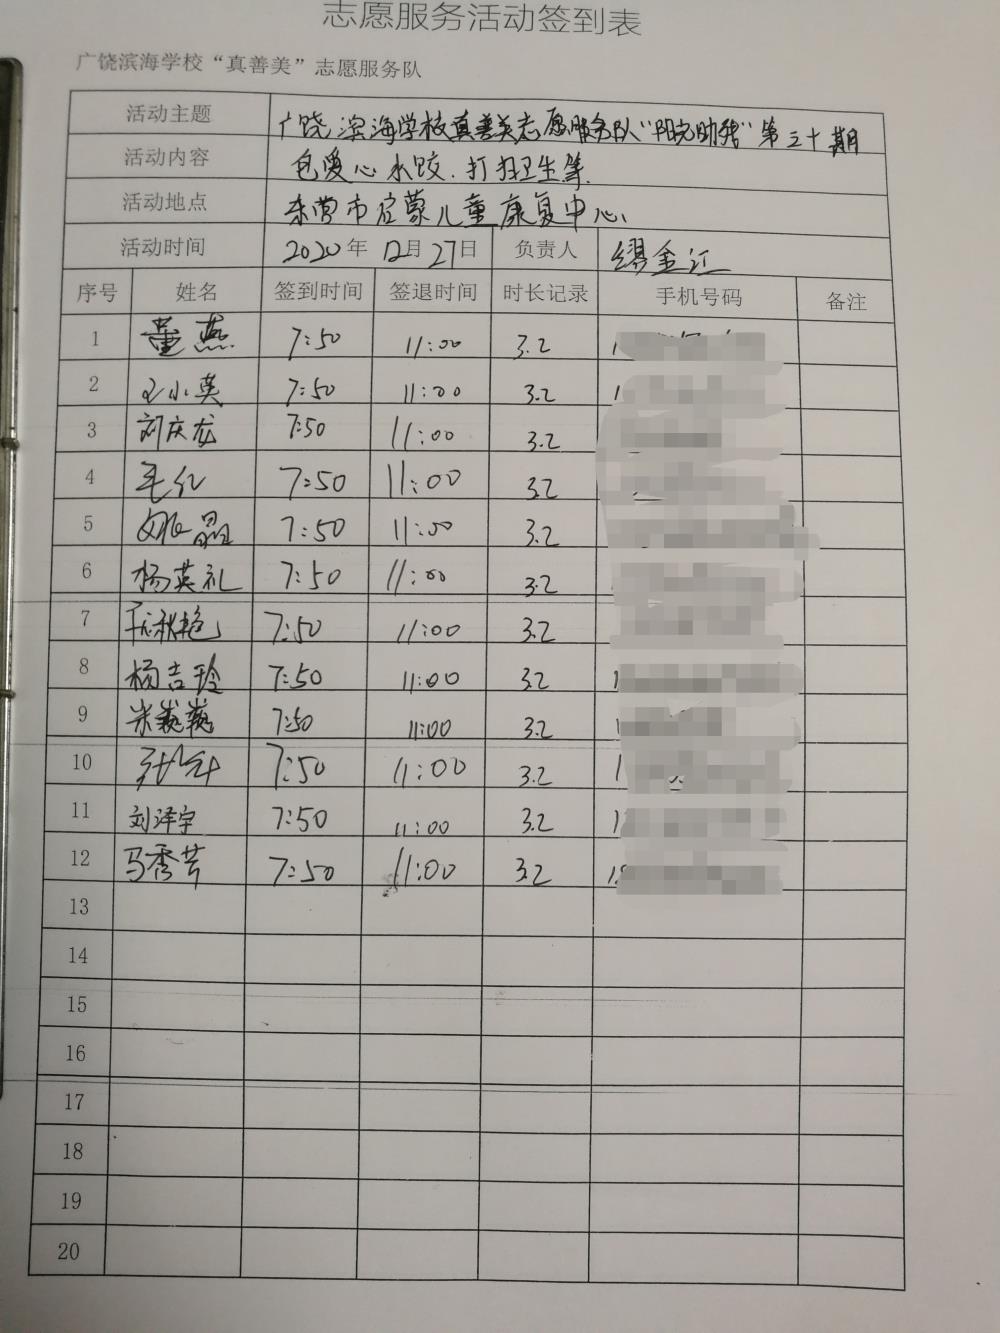 志愿服务活动签到表
广饶滨海学校“真善美”志愿服务队
活动主题 广饶滨海学校真善美志愿服务队“阳光助残”第三十期
活动内容 包爱心水饺.打扫卫生等.
活动地点 东营市启蒙儿童康复中心.
活动时间 2020年12月27日 负责人 缪金江
序号 姓名 签到时间 签退时间 时长记录 手机号码 备注
1 董燕 7:50 11:00 3.2 1
2 王小英 7:50 11:00 3.2 1
3 刘庆龙 7:50 11:00 3.2
4 毛红 7:50 11:00 3.2
5 晶 7:50 11:00 3.2
6 杨英礼 7:50 11:00 3.2
7 秋艳 7:50 11:00 3.2
8 杨吉玲 7:50 11:00 3.2 1
9 米巍巍 7:50 11:00 3.2
10 7:50 11:00 3.2 1
11 刘泽宇 7:50 11:00 3.2 1
12 马秀芳 7:50 11:00 3.2 18
13
14
15
16
17
18
19
20